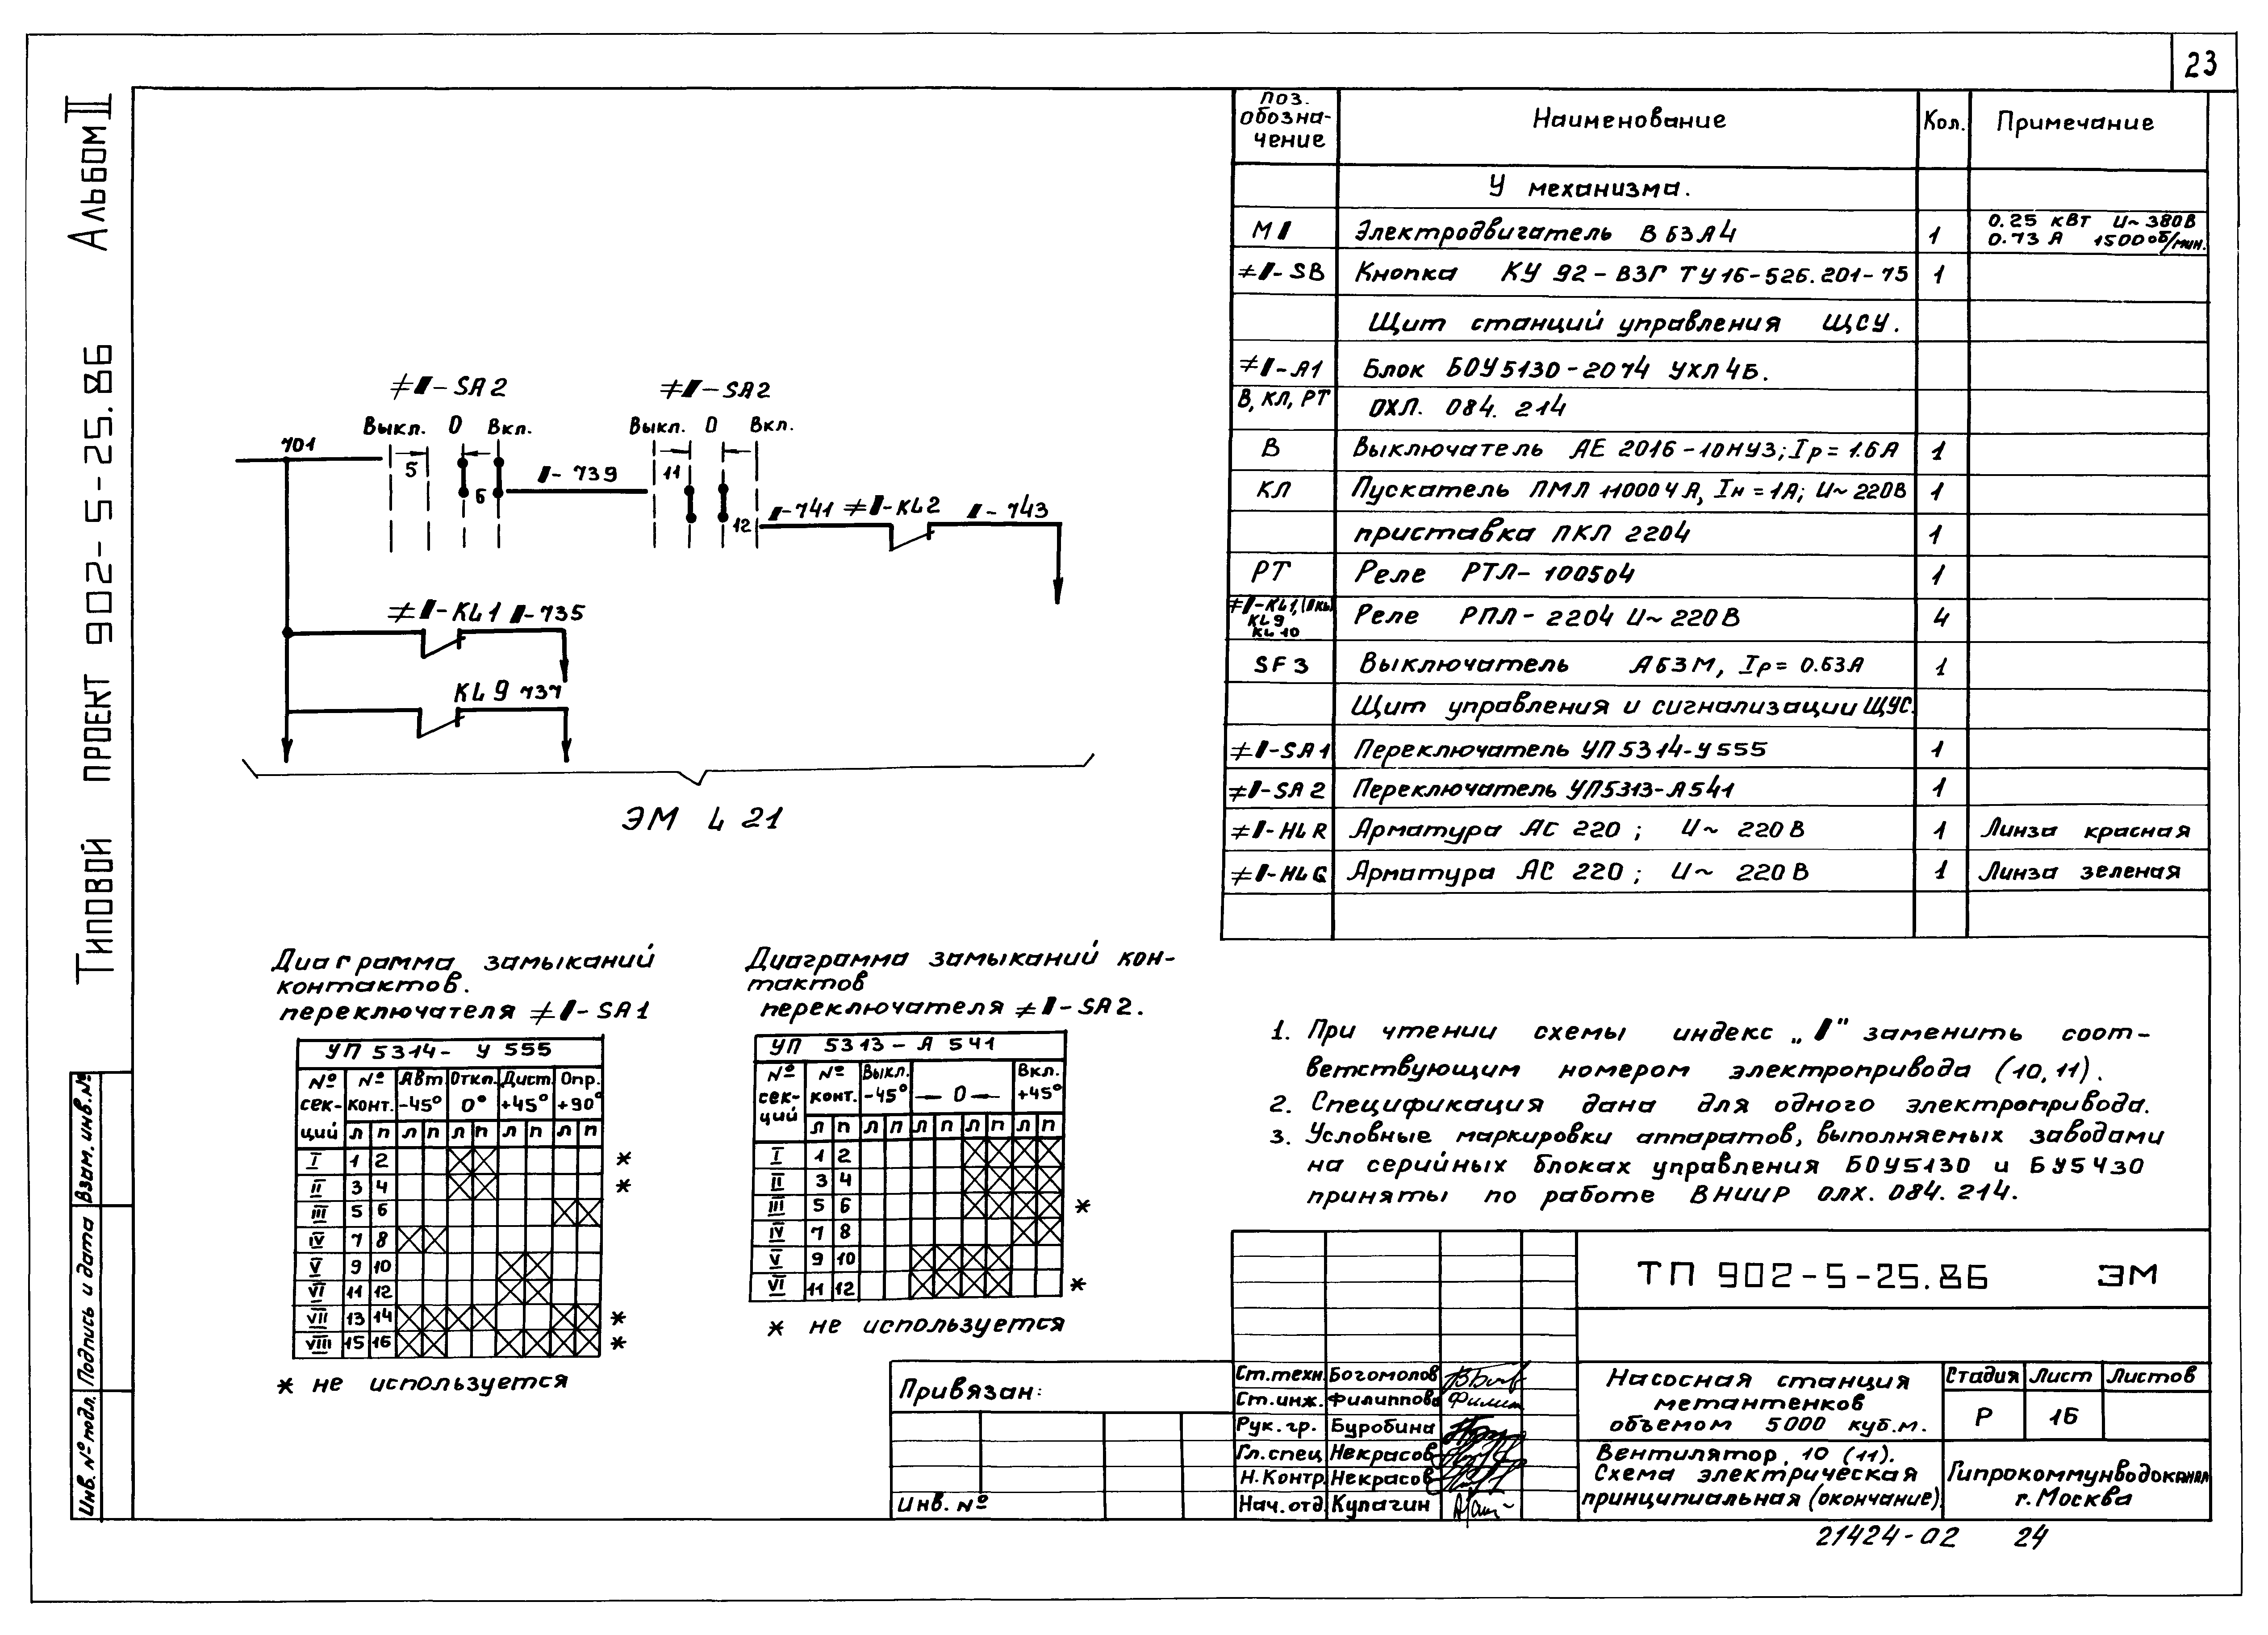 23
Альбом II
Типовой проект 902-5-25.86
≠▮-SA2
≠▮-SA2
Выкл. 0 Вкл.
Выкл. 0 Вкл.
701
5
6
▮-739
11
12
▮-741 ≠▮-KL2 ▮-743
≠▮-KL1 ▮-735
KL9 737
ЭМ L 21
Поз. обозна-чение Наименование Кол. Примечание
У механизма.
М▮ Электродвигатель В63А4 1 0.25 кВт U~380В 0.73 А 1500об/мин.
≠▮-SB Кнопка КУ 92-ВЗГ ТУ16-526.201-75 1
Щит станций управления ЩСУ.
≠▮-А1 Блок БОУ5130-2074 УХЛ4Б.
В, КЛ, РТ ОХЛ. 084. 214
В Выключатель АЕ 2016-10НУЗ; Iр = 1.6А 1
КЛ Пускатель ПМЛ 110004А, Iн = 1А; U~220В 1
приставка ПКЛ 2204 1
РТ Реле РТЛ-100504 1
KL9
KL10
Реле РПЛ-2204 U~220В 4
SF3 Выключатель А63М, Iр = 0.63А 1
Щит управления и сигнализации ЩУС.
≠▮-SA1 Переключатель УП5314-У555 1
≠▮-SA2 Переключатель УП5313-А541 1
≠▮-HLR Арматура АС 220; U~ 220В 1 Линза красная
≠▮-HLG Арматура АС 220; U~ 220В 1 Линза зеленая
Диаграмма замыканий
контактов.
переключателя ≠▮-SA1
УП 5314- У 555
№ сек-ций № конт. Авт. -45° Откл. 0° Дист. +45° Опр. +90°
л п л п л п л п л п
I 1 2 *
II 3 4 *
III 5 6
IV 7 8
V 9 10
VI 11 12
VII 13 14 *
VIII 15 16 *
* не используется
Диаграмма замыканий кон-
тактов
переключателя ≠▮-SA2.
УП 5313-А 541
№ сек-ций № конт. Выкл. -45° 0 Вкл. +45°
л п л п л п л п л п
I 1 2
II 3 4
III 5 6 *
IV 7 8
V 9 10
VI 11 12 *
* не используется
1. При чтении схемы индекс „▮" заменить соот-
ветствующим номером электропривода (10,11).
2. Спецификация дана для одного электропривода.
3. Условные маркировки аппаратов, выполняемых заводами
на серийных блоках управления БОУ5130 и БУ5430
приняты по работе ВНИИР ОЛХ. 084. 214.
ТП 902-5-25.86 ЭМ
Привязан:
Инв. №
Ст.техн. Богомолов
Ст.инж. Филиппова
Рук. гр. Буробина
Гл.спец Некрасов
Н.Контр. Некрасов
Нач.отд. Кулагин
Насосная станция
метантенков
объемом 5000 куб.м.
Стадия Лист Листов
Р 16
Вентилятор. 10 (11).
Схема электрическая
принципиальная (окончание).
Гипрокоммунводоканал
г. Москва
21424-02 24
Взам. инв. №
Подпись и дата
Инв. № подл.